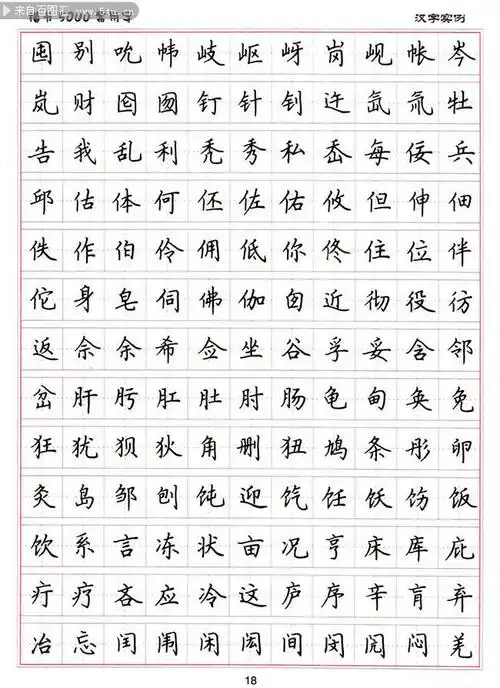 来自百图汇 www.5tu.cn
5000 汉字实例
囤 别 吮 帏 岐 岖 岈 岗 岘 帐 岑
岚 财 囵 囫 钉 针 钊 迕 氙 氚 牡
告 我 乱 利 秃 秀 私 岙 每 佞 兵
邱 估 体 何 佐 佑 攸 但 伸 佃
佚 作 伯 伶 佣 低 你 佟 住 位 伴
佗 身 皂 伺 佛 伽 囱 近 彻 役 彷
返 佘 余 希 佥 坐 谷 孚 妥 含 邻
岔 肝 肟 肛 肚 肘 肠 龟 甸 奂 免
狂 犹 狈 狄 角 删 狃 鸠 条 彤 卵
灸 岛 邹 刨 饨 迎 饩 饪 饫 饬 饭
饮 系 言 冻 状 亩 况 亨 床 库 庇
疔 疗 吝 应 冷 这 庐 序 辛 肓 弃
冶 忘 闰 闱 闲 闳 间 闵 闷 羌
18